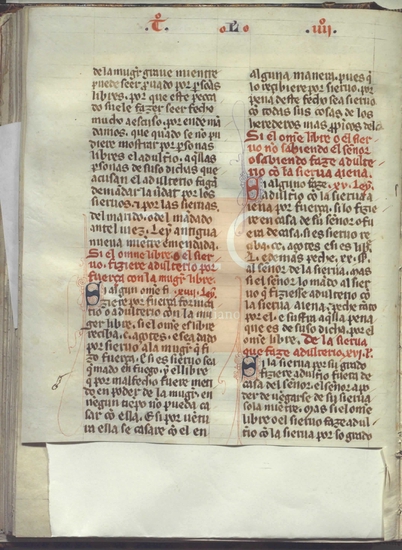 T. L. IIII
de la mugr graue miente
puede seer puado por psonas
libres. por que este pecca
do suele fazer seer fecho
mucho a escuso. por ende mā
damos. que quādo se nō pu
diere mostrar por psonas
libres el adulterio. aq̄llas
psonas de suso dichas que
acusan el adulterio fagā
demādar la uidat por los
sieruos. τ por las sieruas
del marido. o del
ante el iuez. Ley antigua
nueua miētre emendada.
Si el omne libre o el sier
uo. fiziere adulterio por
fuerça con la mugr libre.
Si algun omē fi .xiiii. Ley.
ziere por fuerça forniciō
o adulterio con la mu
ger libre. si el omē es libre
reciba .c. açotes. e sea dado
por sieruo a la mugr q̄ fi
zo fuerça. E si es sieruo sea
q̄mado en fuego. y el libre
q̄ por mal fecho fuere meti
do en poder de la mugr. en
negun tiēpo nō pueda ca
sar cō ella. E si por uētu
ra ella se casare cō el en
alguna manera. pues q̄
lo recibiere por sieruo. por
pena deste fecho sea sierua
cō todas sus cosas de los
herederos mas ꝓpicos della.
Si el omē libre o el sier
uo nō sabiendo el señor.
o sabiendo faze adulte
rio cō la sierua aiena.
Si alguno faze .xv. Ley.
adulterio cō la sierua a
iena por fuerça. si lo fizie
re en casa de su señor o fu
era de casa. si es sieruo re
çiba .cc. açotes. e si es lib̄
L. e demas peche .xx. ss.
al señor de la sierua. mas
si el señor lo mādo al sier
uo q̄ fiziesse adulterio cō
la sierua aiena. peche tāto
por el. e suffra aq̄lla pena
que es de suso dicha. por el
omē libre. De la sierua
que faze adulterio. xvi. L.
Si la sierua por su grado
fiziere adulterio fuera de
casa del señor. el señor a po
der de uengarse de su sierua
sola miētre. mas si el omē
libre o el sieruo faze adul
terio cō la sierua por so grado